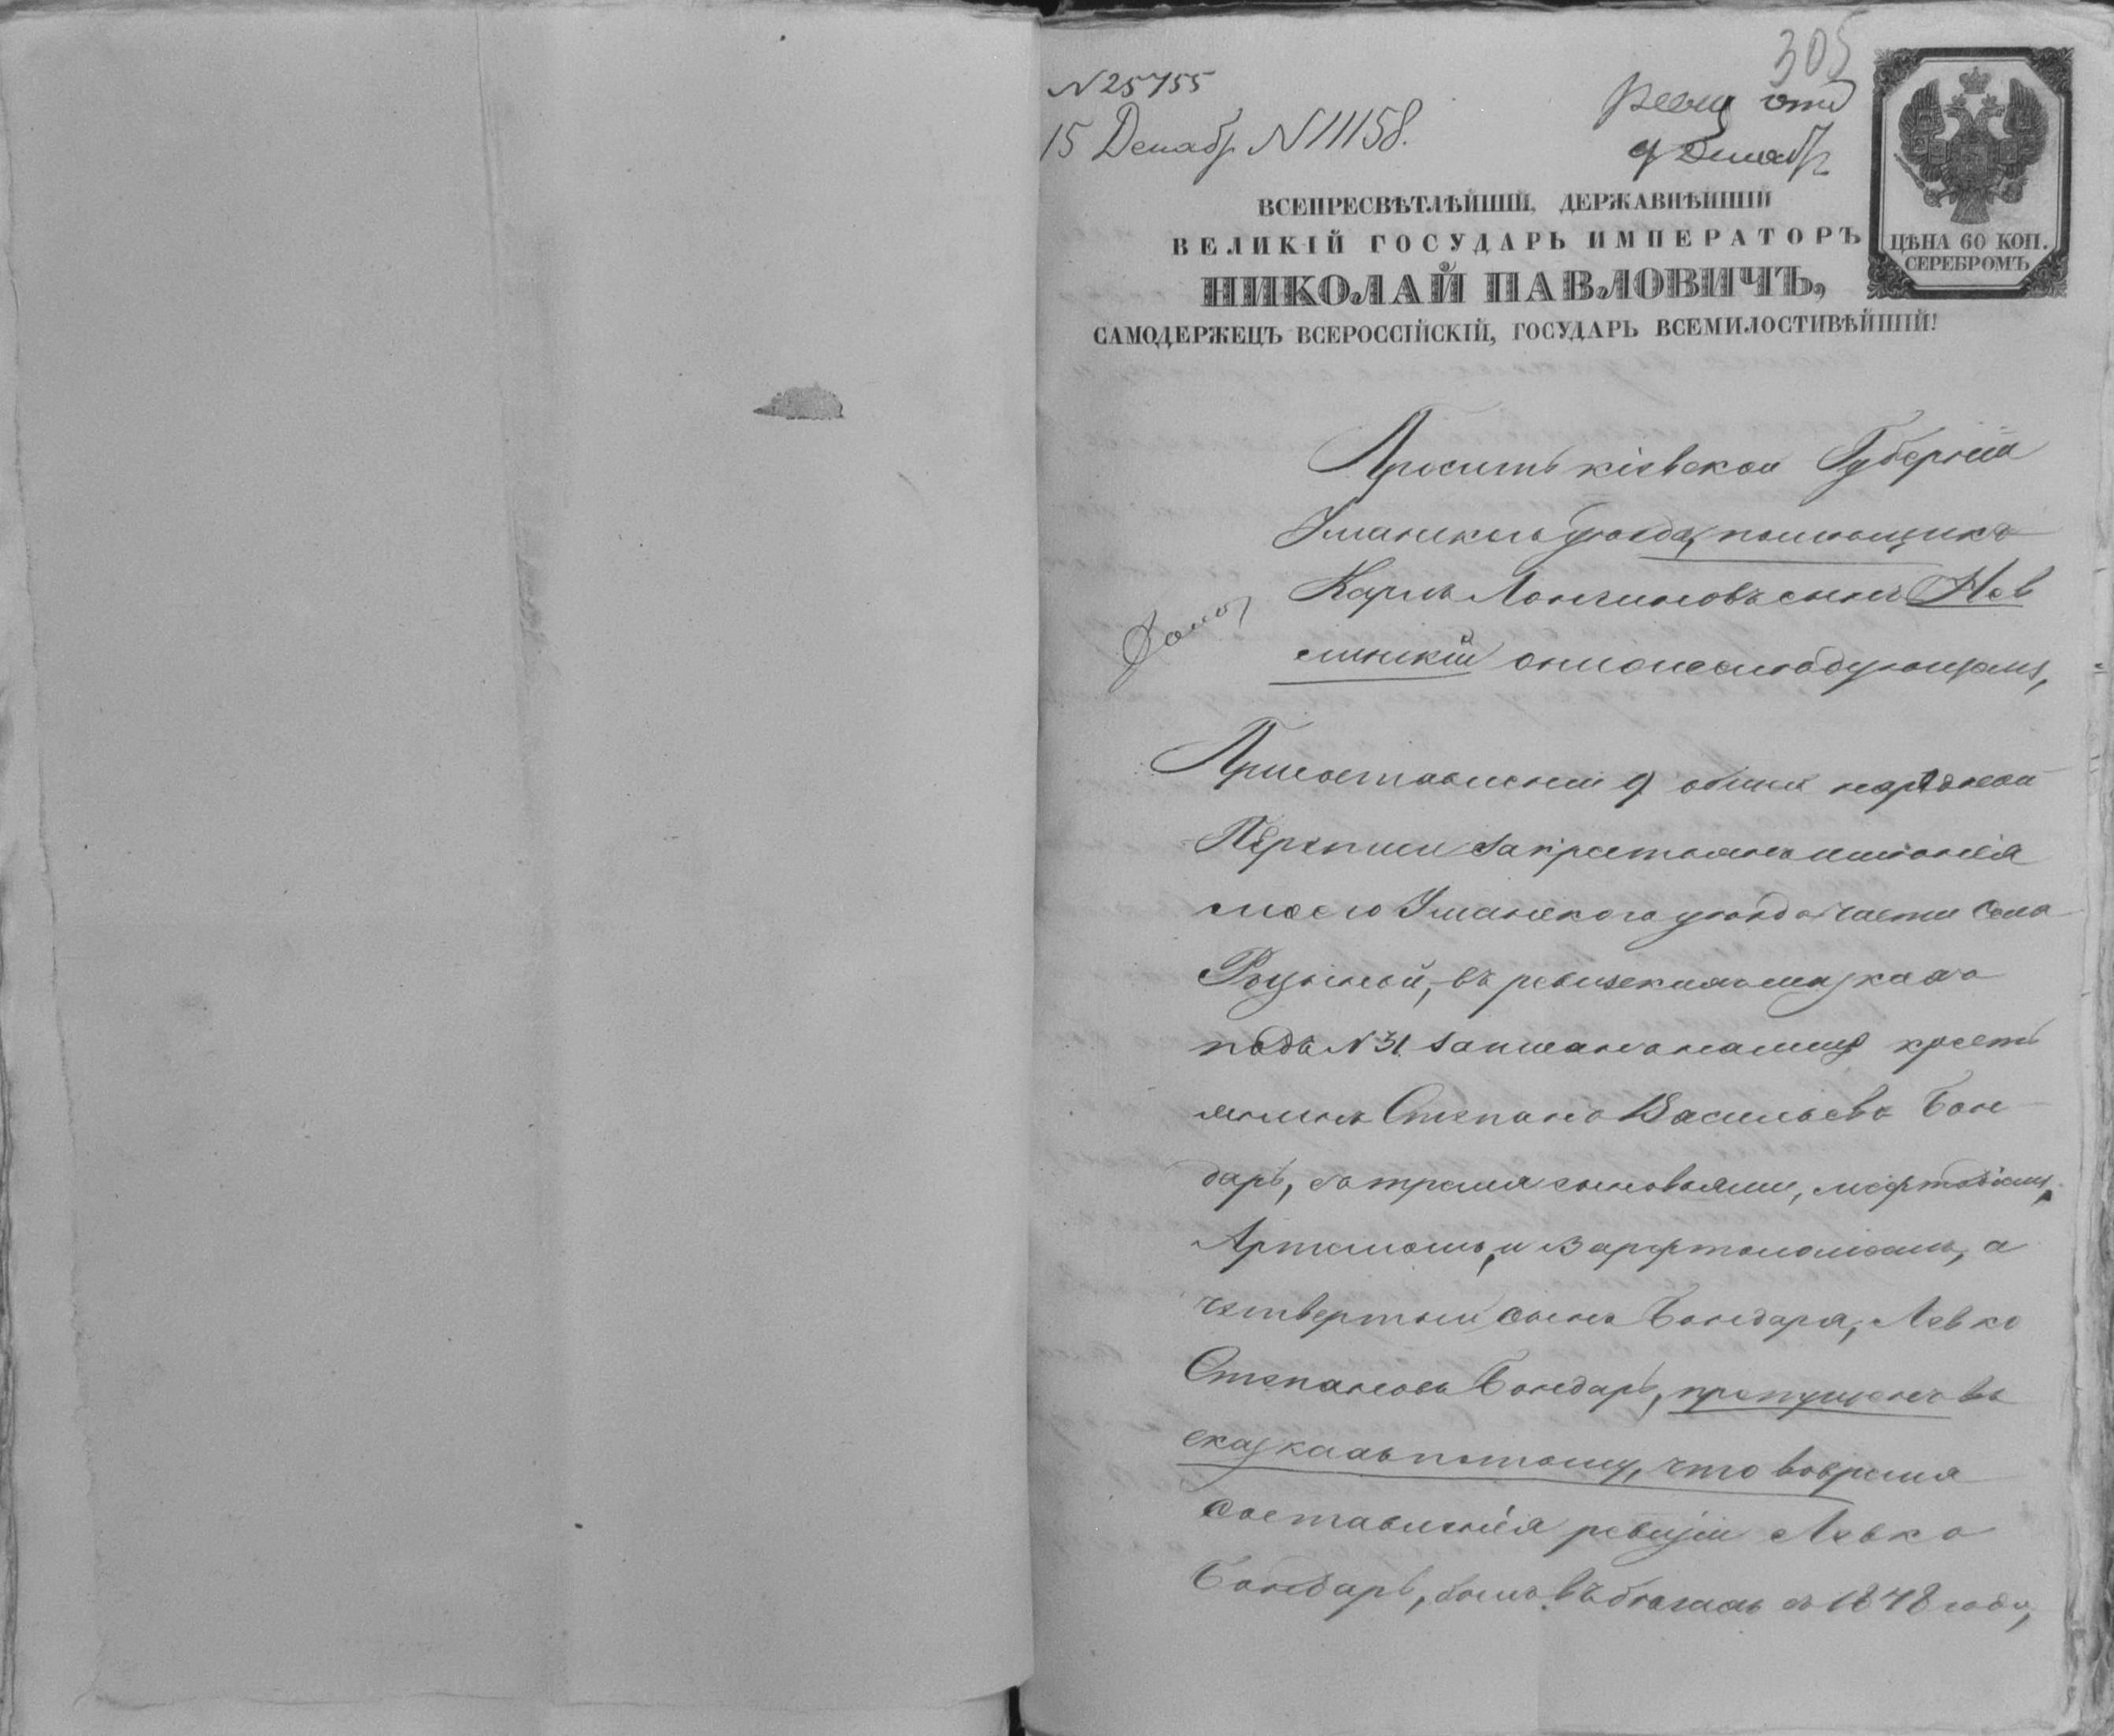 305
N 25755
15 Декабр N 11158.
ревиз отд
9 Декабр
ВСЕПРЕСВѢТЛѢЙШІЙ, ДЕРЖАВНѢЙШІЙ
ВЕЛИКІЙ ГОСУДАРЬ ИМПЕРАТОРЪ
НИКОЛАЙ ПАВЛОВИЧЪ,
САМОДЕРЖЕЦЪ ВСЕРОССІЙСКІЙ, ГОСУДАРЬ ВСЕМИЛОСТИВѢЙШІЙ!
ЦѢНА 60 КОП.
СЕРЕБРОМЪ
Проситъ кіевской Губерніи
Уманскаго уѣзда, помѣщикъ
Карлъ Лонгиновъ сынъ
о нижеслѣдующемъ,
При составленіи 9 общей народной
Переписи за крестьянъ имѣнія
моего Уманскаго уѣзда части села
въ ревизскихъ сказкахъ
подъ N 31 записанъ крестъ
янинъ Степанъ Васильевъ Бон
даръ, съ тремя сыновьями,
Артемомъ, и Варфоломеемъ, а
четвертый сынъ Бондаря, Левко
Степановъ Бондарь, пропущенъ въ
сказкахъ потому, что во время
составленія ревизіи Левко
Бондарь, былъ въ бѣгахъ съ 1848 году,